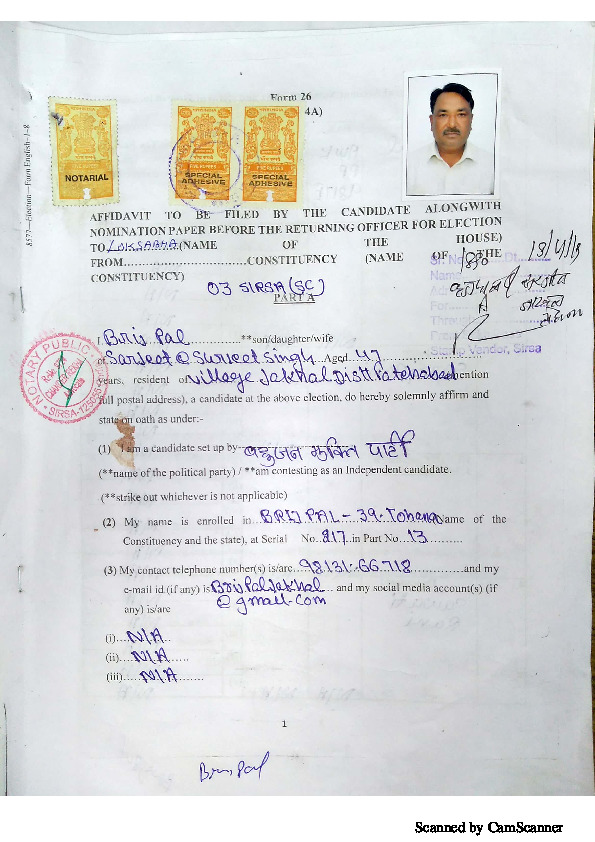 Form 26
4A)
8572—Election—Form English—1-8
NOTARIAL
FIVE RUPEES
SPECIAL
ADHESIVE
FIVE RUPEES
SPECIAL
ADHESIVE
AFFIDAVIT TO BE FILED BY THE CANDIDATE ALONGWITH
NOMINATION PAPER BEFORE THE RETURNING OFFICER FOR ELECTION
TO LOKSABHA (NAME OF THE HOUSE)
FROM..............................CONSTITUENCY (NAME OF THE
CONSTITUENCY)
03 SIRSA (SC)
PART A
Stamp Vendor, Sirsa
NOTARY PUBLIC
SIRSA-125055
I Brij Pal ..................**son/daughter/wife
of Sarjeet @ Surjeet Singh...Aged 47
years, resident of Village Jakhal Distt Fatehabad mention
full postal address), a candidate at the above election, do hereby solemnly affirm and
state on oath as under:-
(1) I am a candidate set up by बहुजन मुक्ति पार्टी
(**name of the political party) / **am contesting as an Independent candidate.
(**strike out whichever is not applicable)
(2) My name is enrolled in BRIJ PAL - 39-Tohana Name of the
Constituency and the state), at Serial No. 817 in Part No. 13
(3) My contact telephone number(s) is/are 98131-66718 and my
e-mail id (if any) is BrijPalJakhal and my social media account(s) (if
@gmail.com
any) is/are
(i)....N/A..
(ii)....N/A.....
(iii).....N/A.......
1
Brij Pal
Scanned by CamScanner